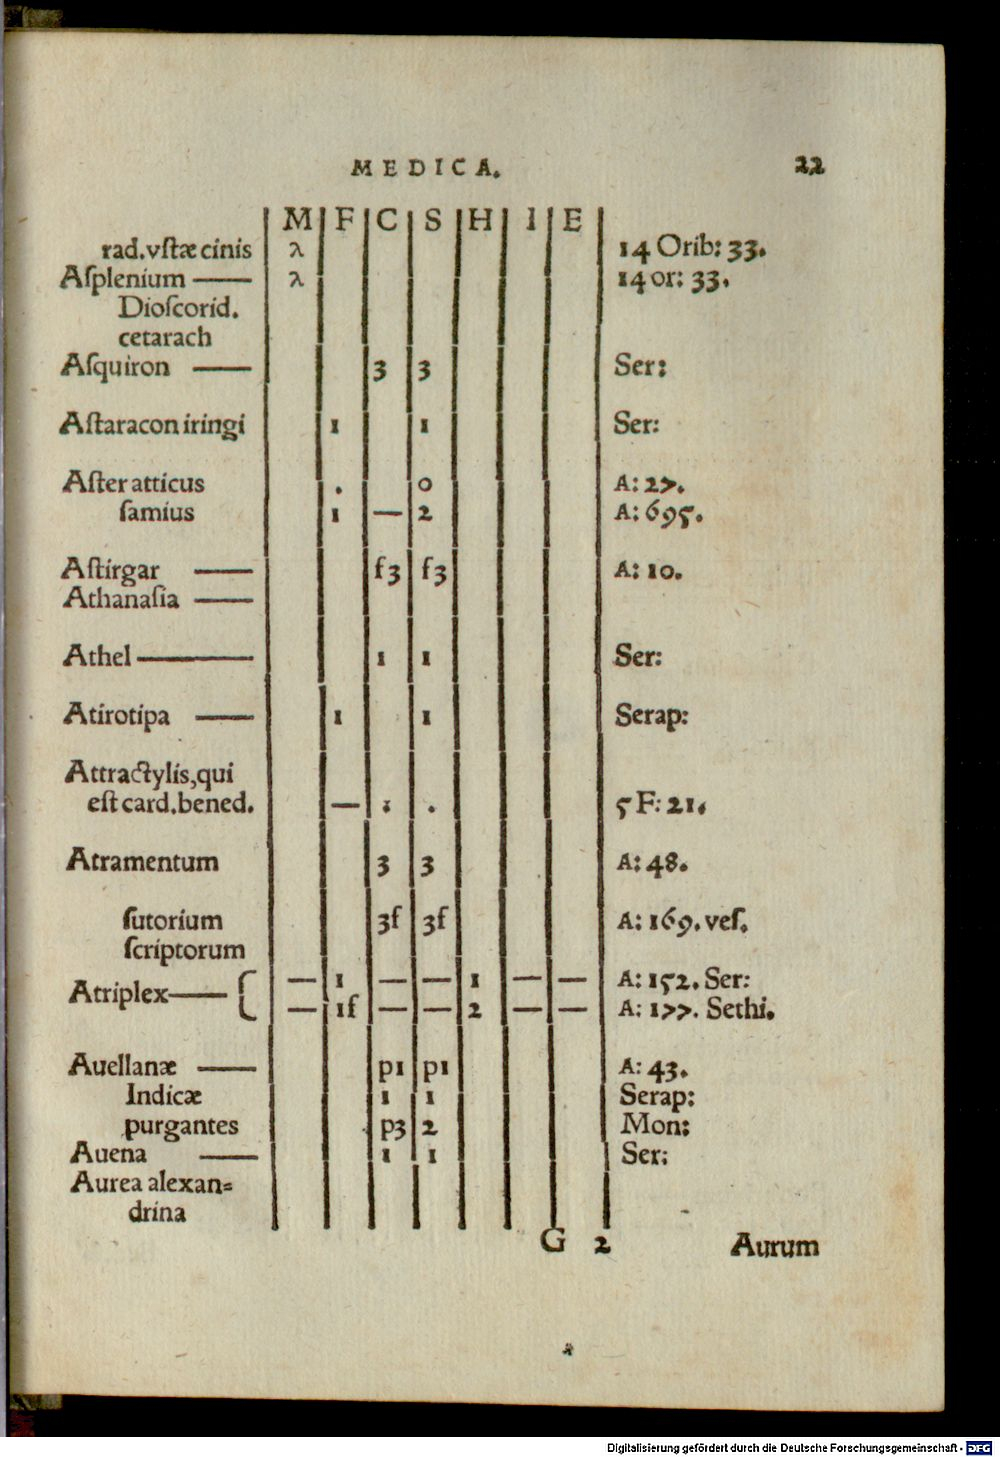 MEDICA. 22
M F C S H I E
rad. vſtæ cinis λ 14 Orib: 33.
Aſplenium —— λ 14 or: 33.
Dioſcorid.
cetarach
Aſquiron —— 3 3 Ser:
Aſtaracon iringi 1 1 Ser:
Aſter atticus . 0 A: 27.
ſamius 1 — 2 A: 695.
Aſtirgar —— f3 f3 A: 10.
Athanaſia ——
Athel —— 1 1 Ser:
Atirotipa —— 1 1 Serap:
Attractylis, qui
eſt card. bened. — : . 5 F: 21.
Atramentum 3 3 A: 48.
ſutorium 3f 3f A: 169. veſ.
ſcriptorum
Atriplex —— { — 1 — — 1 — — A: 152. Ser:
— 1f — — 2 — — A: 177. Sethi.
Auellanæ —— p1 p1 A: 43.
Indicæ 1 1 Serap:
purgantes p3 2 Mon:
Auena —— 1 1 Ser:
Aurea alexan=
drina
G 2 Aurum
Digitalisierung gefördert durch die Deutsche Forschungsgemeinschaft - DFG